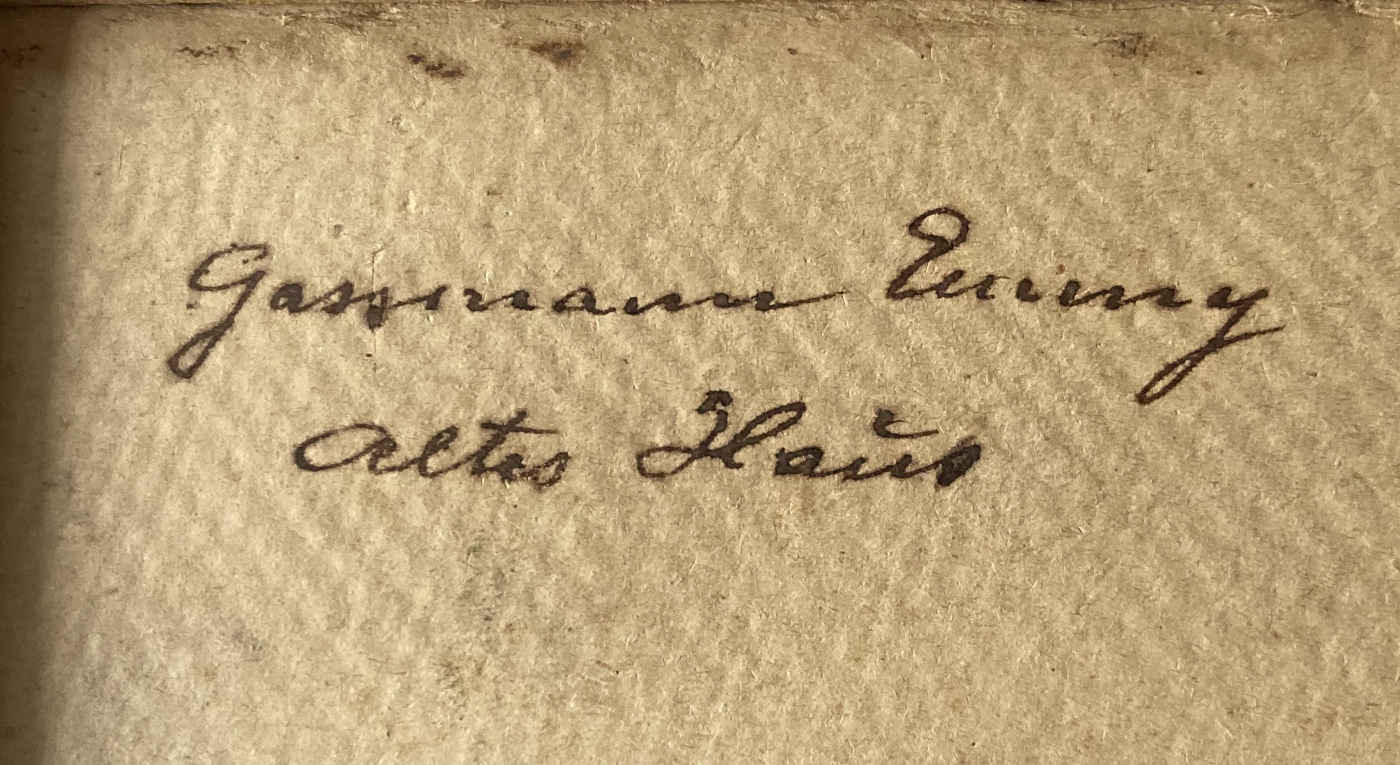 Gassmann Emmy
Altes Haus